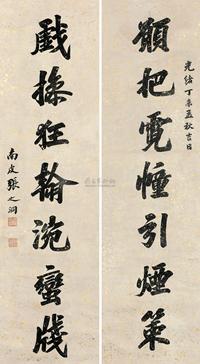 光緒丁未孟秋吉日
願把霓幢引煙策
戲操狂翰涴蠻牋
南皮張之洞